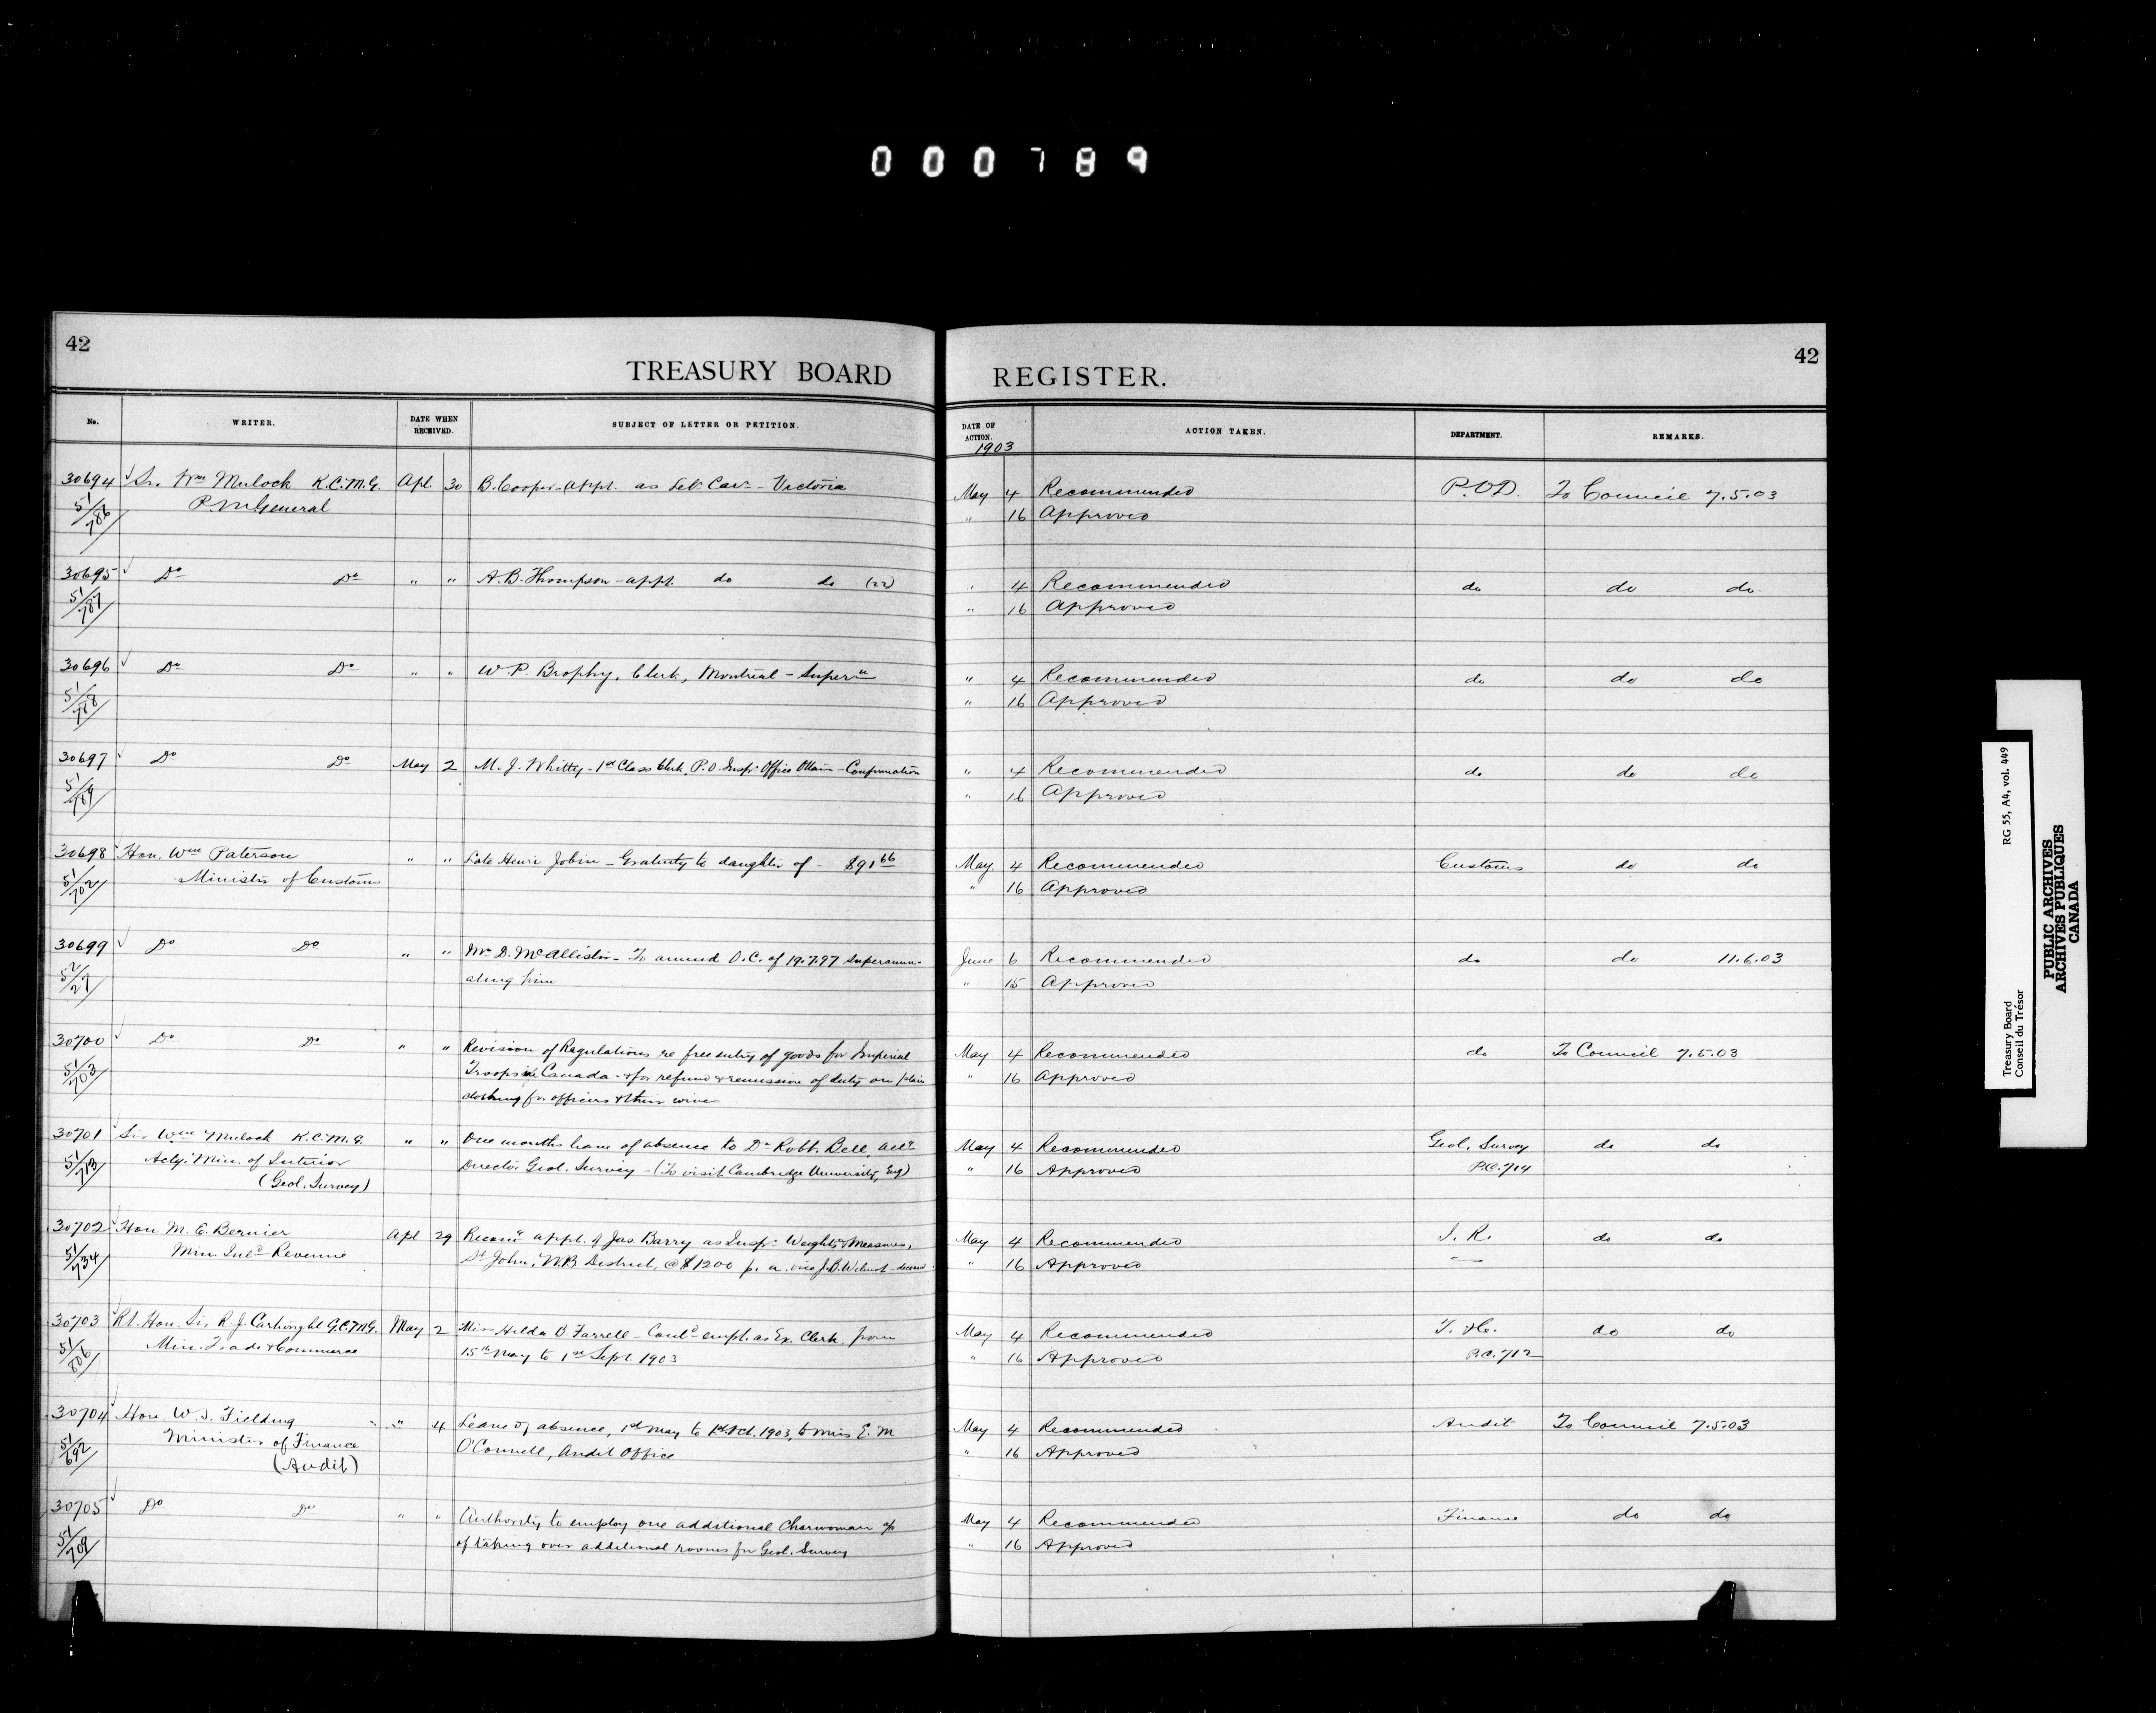 000789
42
TREASURY BOARD REGISTER.
42
No. WRITER. DATE WHEN RECEIVED. SUBJECT OF LETTER OR PETITION. DATE OF ACTION. ACTION TAKEN. DEPARTMENT. REMARKS.
1903
30694 Sir Wm Mulock K.C.M.G. Apl. 30 B. Cooper - appt. as Let. Carr - Victoria May 4 Recommended P.O.D. To Council 7.5.03
51/786 P.M. General " 16 Approved
30695 Do Do " " A.B. Thompson - appt. do do (22) " 4 Recommended do do do
51/787 " 16 Approved
30696 Do Do " " W.P. Brophy, Clerk, Montreal - Super" " 4 Recommended do do do
51/788 " 16 Approved
30697 Do Do May 2 M.J. Whitty - 1st Class Clerk, P.O. Inspr Office Ottawa - Confirmation " 4 Recommended do do do
51/789 " 16 Approved
30698 Hon. Wm Paterson " " Late Henri Jobin - Gratuity to daughter of - $91 66 May 4 Recommended Customs do do
51/702 Minister of Customs " 16 Approved
30699 Do Do " " Mr D. McAllister - To amend O.C. of 19.7.97 superannu- June 6 Recommended do do 11.6.03
52/27 ating him " 15 Approved
30700 Do Do " " Revision of Regulations re free entry of goods for Imperial May 4 Recommended do To Council 7.5.03
51/703 Troops in Canada - & for refund & remission of duty on plain " 16 Approved
clothing for officers & their wives
30701 Sir Wm Mulock K.C.M.G. " " One months leave of absence to Dr Robt. Bell, actg May 4 Recommended Geol. Survey do do
51/713 Actg. Min. of Interior Director Geol. Survey - (To visit Cambridge University, Eng) " 16 Approved P.C. 714
(Geol. Survey)
30702 Hon M.E. Bernier Apl 29 Recomg appt. of Jas. Barry as Inspr Weights & Measures, May 4 Recommended I.R. do do
51/734 Min. Inld Revenue St John, N.B. District, @ $1200 p. a. vice J.B. " 16 Approved
30703 Rt. Hon. Sir R.J. Cartwright G.C.M.G. May 2 Miss Hilda O'Farrell - Contd empt. as Ex. Clerk, from May 4 Recommended T. & C. do do
51/806 Min. Trade & Commerce 15th May to 1st Sept. 1903 " 16 Approved P.C. 712
30704 Hon. W.S. Fielding " 4 Leave of absence, 1st May to 1st Oct. 1903, to Miss E.M. May 4 Recommended Audit To Council 7.5.03
51/692 Minister of Finance O'Connell, Audit Office " 16 Approved
(Audit)
30705 Do Do " " Authority to employ one additional Charwoman a/c May 4 Recommended Finance do do
51/709 of taking over additional rooms for Geol. Survey " 16 Approved
Treasury Board RG 55, A4, vol. 449
Conseil du Trésor
PUBLIC ARCHIVES
ARCHIVES PUBLIQUES
CANADA